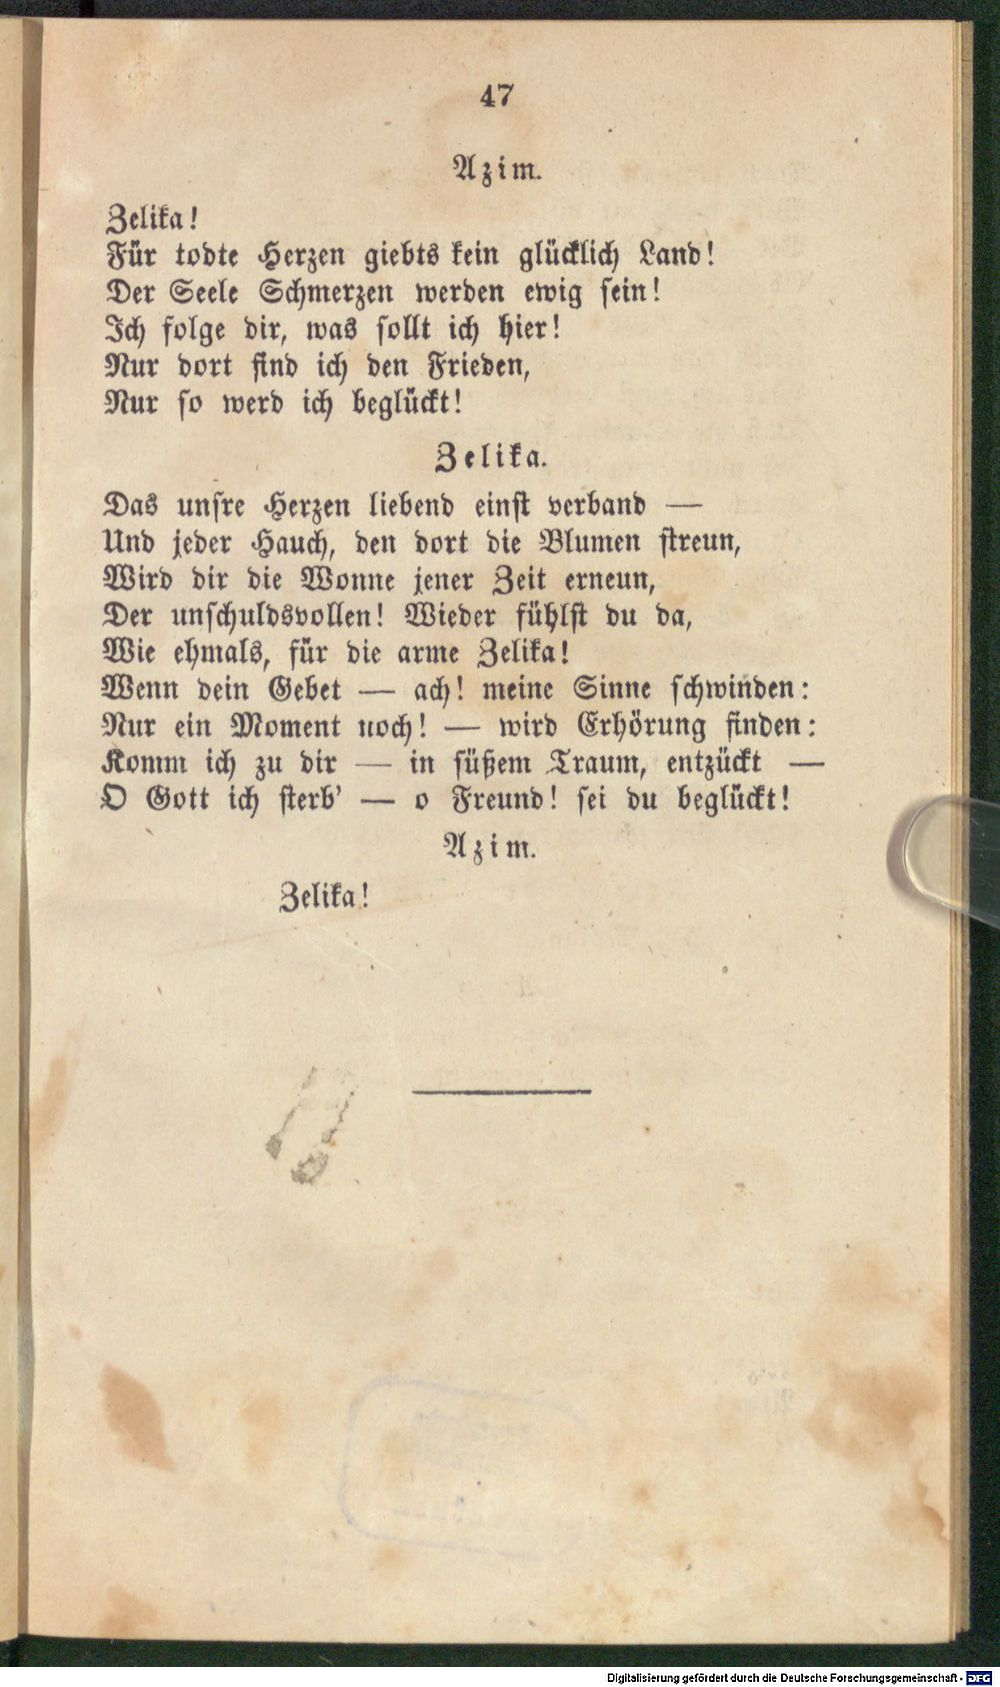 47
Azim.
Zelika!
Für todte Herzen giebts kein glücklich Land!
Der Seele Schmerzen werden ewig sein!
Ich folge dir, was sollt ich hier!
Nur dort find ich den Frieden,
Nur so werd ich beglückt!
Zelika.
Das unsre Herzen liebend einst verband —
Und jeder Hauch, den dort die Blumen streun,
Wird dir die Wonne jener Zeit erneun,
Der unschuldsvollen! Wieder fühlst du da,
Wie ehmals, für die arme Zelika!
Wenn dein Gebet — ach! meine Sinne schwinden:
Nur ein Moment noch! — wird Erhörung finden:
Komm ich zu dir — in süßem Traum, entzückt —
O Gott ich sterb' — o Freund! sei du beglückt!
Azim.
Zelika!
Digitalisierung gefördert durch die Deutsche Forschungsgemeinschaft - DFG